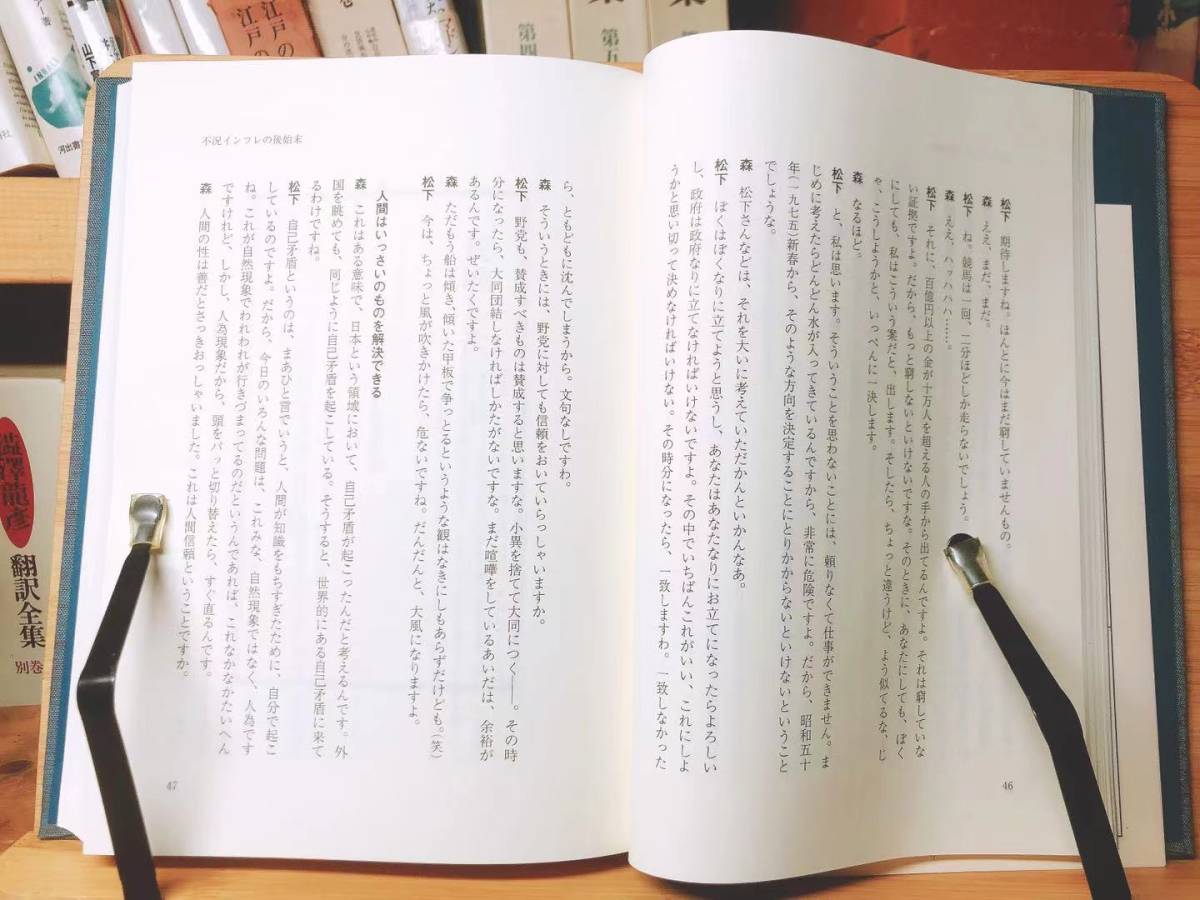 松下　期待しますね。ほんとに今はまだ窮していませんもの。
森　ええ、まだ、まだ。
松下　ね。競馬は一回、二分ほどしか走らないでしょう。
森　ええ、ハッハッハ……。
松下　それに、百億円以上の金が十万人を超える人の手から出てるんですよ。それは窮していな
い証拠ですよ。だから、もっと窮しないといけないですな。そのときに、あなたにしても、ぼく
にしても、私はこういう案だと、出します。そしたら、ちょっと違うけど、よう似てるな、じ
ゃ、こうしようかと、いっぺんに一決します。
森　なるほど。
松下　と、私は思います。そういうことを思わないことには、頼りなくて仕事ができません。ま
じめに考えたらどんどん水が入ってきているんですから、非常に危険ですよ。だから、昭和五十
年（一九七五）新春から、そのような方向を決定することにとりかからないといけないということ
でしょうな。
森　松下さんなどは、それを大いに考えていただかんといかんなあ。
松下　ぼくはぼくなりに立てようと思うし、あなたはあなたなりにお立てになったらよろしい
し、政府は政府なりに立てなければいけないですよ。その中でいちばんこれがいい、これにしよ
うかと思い切って決めなければいけない。その時分になったら、一致しますわ。一致しなかった
46
不況インフレの後始末
ら、ともどもに沈んでしまうから。文句なしですわ。
森　そういうときには、野党に対しても信頼をおいていらっしゃいますか。
松下　野党も、賛成すべきものは賛成すると思いますな。小異を捨てて大同につく――。その時
分になったら、大同団結しなければしかたがないですな。まだ喧嘩をしているあいだは、余裕が
あるんです。ぜいたくですよ。
森　ただもう船は傾き、傾いた甲板で争っとるというような観はなきにしもあらずだけども。（笑）
松下　今は、ちょっと風が吹きかけたら、危ないですね。だんだんと、大風になりますよ。
人間はいっさいのものを解決できる
森　これはある意味で、日本という領域において、自己矛盾が起こったんだと考えるんです。外
国を眺めても、同じように自己矛盾を起こしている。そうすると、世界的にある自己矛盾に来て
るわけですね。
松下　自己矛盾というのは、まあひと言でいうと、人間が知識をもちすぎたために、自分で起こ
しているのですよ。だから、今日のいろんな問題は、これみな、自然現象ではなく、人為です
ね。これが自然現象でわれわれが行きづまってるのだというんであれば、これなかなかたいへん
ですけれど、しかし、人為現象だから、頭をパッと切り替えたら、すぐ直るんです。
森　人間の性は善だとさっきおっしゃいました。これは人間信頼ということですか。
47
江戸の
江戸の
第四
第五
集
山下
河出書
澁澤龍彦
翻訳全集
別巻